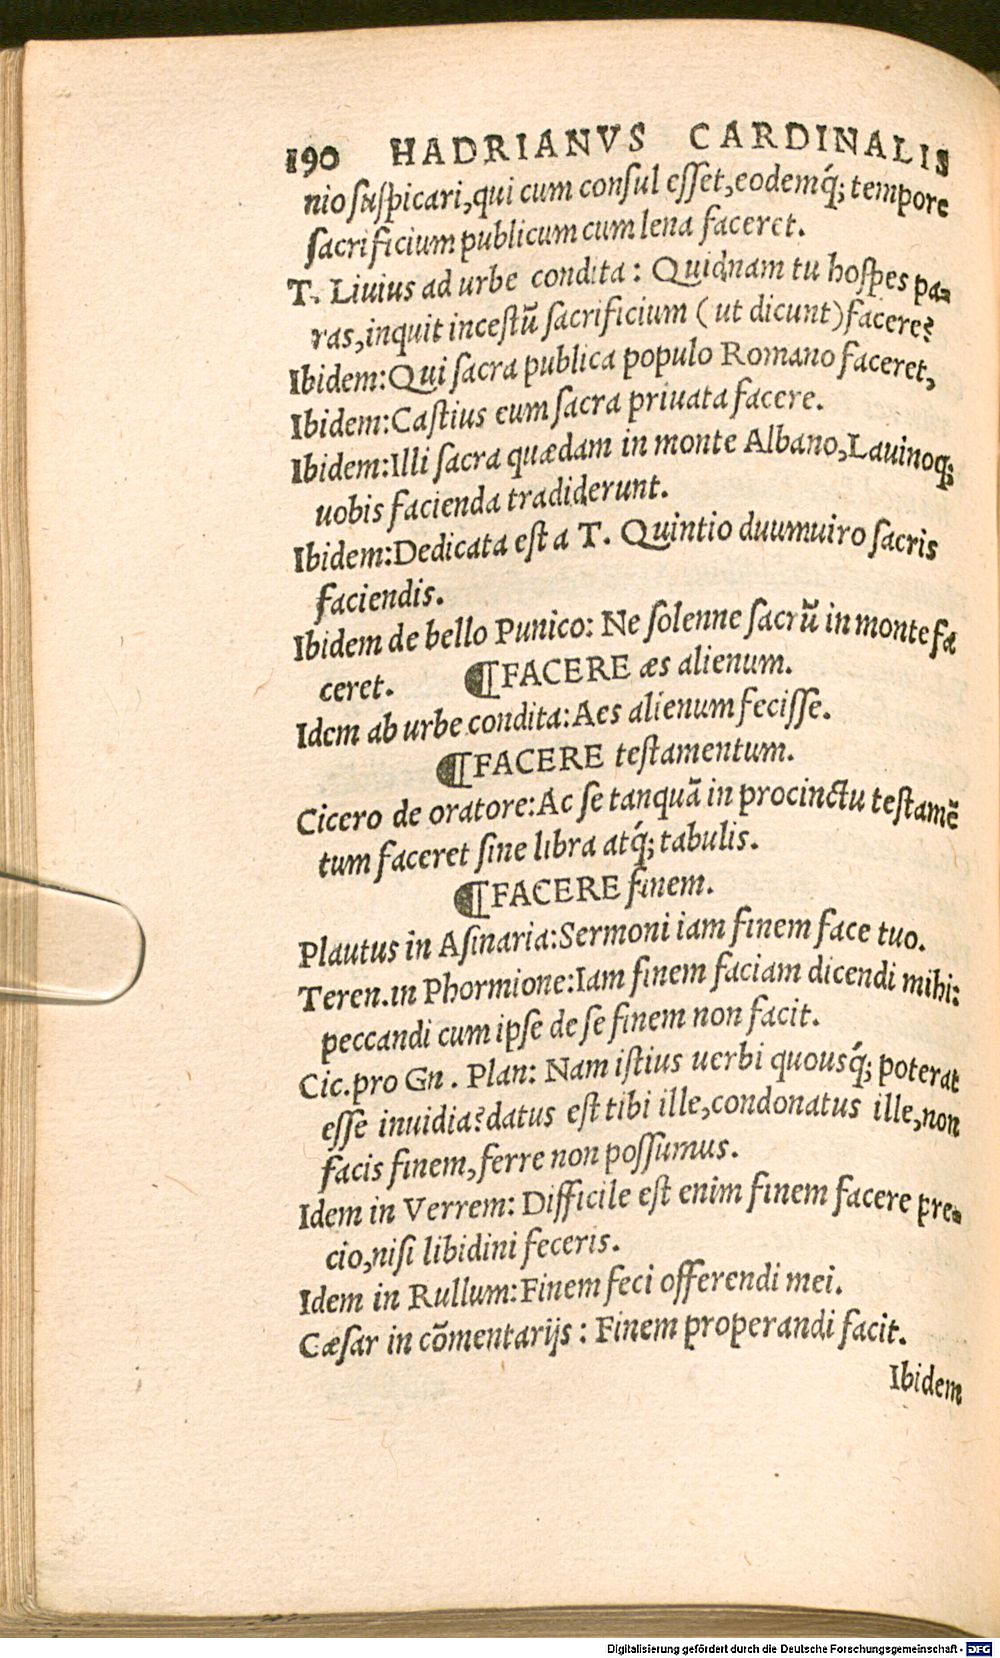 190 HADRIANVS CARDINALIS
nio suspicari, qui cum consul esset, eodemq́; tempore
sacrificium publicum cum lena faceret.
T. Liuius ad urbe condita: Quidnam tu hospes pa-
ras, inquit incestũ sacrificium (ut dicunt) facere?
Ibidem: Qui sacra publica populo Romano faceret,
Ibidem: Castius eum sacra priuata facere.
Ibidem: Illi sacra quædam in monte Albano, Lauinoq;
uobis facienda tradiderunt.
Ibidem: Dedicata est a T. Quintio duumuiro sacris
faciendis.
Ibidem de bello Punico: Ne solenne sacrũ in monte fa
ceret. ¶FACERE æs alienum.
Idem ab urbe condita: Aes alienum fecisse.
¶FACERE testamentum.
Cicero de oratore: Ac se tanquã in procinctu testamẽ
tum faceret sine libra atq́; tabulis.
¶FACERE finem.
Plautus in Asinaria: Sermoni iam finem face tuo.
Teren. in Phormione: Iam finem faciam dicendi mihi:
peccandi cum ipse de se finem non facit.
Cic. pro Gn. Plan: Nam istius uerbi quousq́; poterat
esse inuidia? datus est tibi ille, condonatus ille, non
facis finem, ferre non possumus.
Idem in Verrem: Difficile est enim finem facere pre-
cio, nisi libidini feceris.
Idem in Rullum: Finem feci offerendi mei.
Cæsar in cõmentarijs: Finem properandi facit.
Ibidem
Digitalisierung gefördert durch die Deutsche Forschungsgemeinschaft - DFG